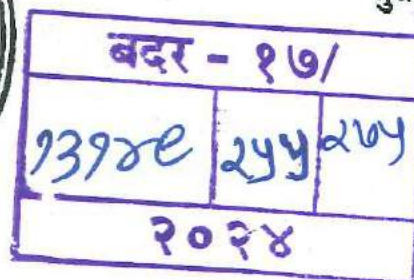 बदर - १७/
१३१४९ २५५ २७५
२०२४